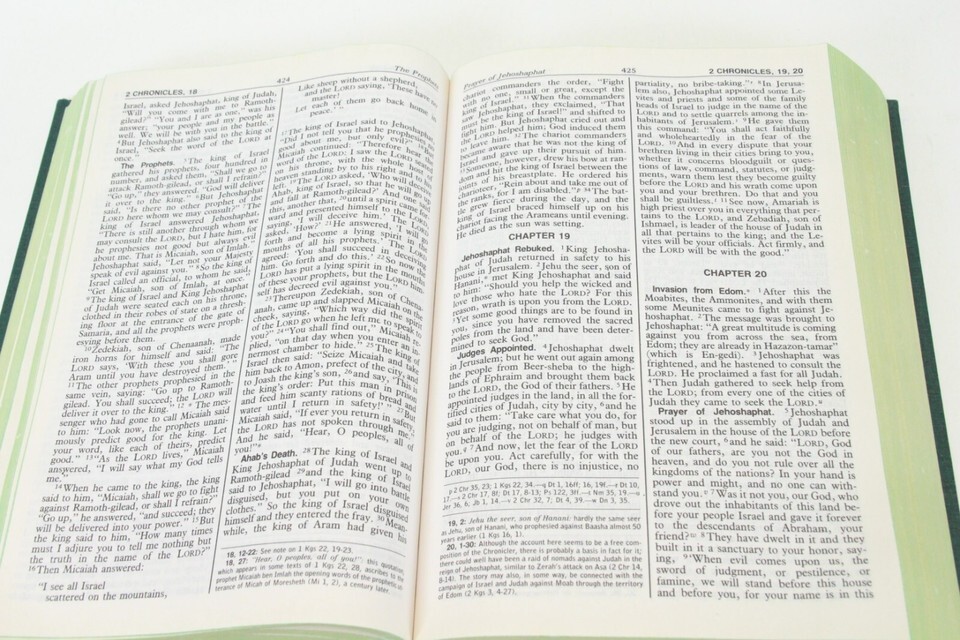 2 CHRONICLES, 18
424
The Prophets
Israel, asked Jehoshaphat, king of Judah,
"Will you come with me to Ramoth-
gilead?" "You and I are as one, was his
answer; "your people and my people as
well. We will be with you in the battle."
4But Jehoshaphat also said to the king of
Israel, "Seek the word of the LORD at
once."
The Prophets. 5The king of Israel
gathered his prophets, four hundred in
number, and asked them, "Shall we go to
attack Ramoth-gilead, or shall I refrain?"
"Go up," they answered. "God will deliver
it over to the king." 6But Jehoshaphat
said, "Is there no other prophet of the
LORD here whom we may consult?" 7The
king of Israel answered Jehoshaphat:
"There is still another through whom we
may consult the LORD, but I hate him, for
he prophesies not good but always evil
about me. That is Micaiah, son of Imlah."
Jehoshaphat said, "Let not your Majesty
speak of evil against you." 8So the king of
Israel called an official, to whom he said,
"Get Micaiah, son of Imlah, at once."
9The king of Israel and King Jehoshaphat
of Judah were seated each on his throne,
clothed in their robes of state on a thresh-
ing floor at the entrance of the gate of
Samaria, and all the prophets were proph-
esying before them.
10Zedekiah, son of Chenaanah, made
iron horns for himself and said: "The
LORD says, 'With these you shall gore
Aram until you have destroyed them.'"
11The other prophets prophesied in the
same vein, saying: "Go up to Ramoth-
gilead. You shall succeed; the LORD will
deliver it over to the king." 12 The mes-
senger who had gone to call Micaiah said
to him: "Look now, the prophets unani-
mously predict good for the king. Let
your word, like each of theirs, predict
good." 13"As the LORD lives," Micaiah
answered, "I will say what my God tells
me."
14When he came to the king, the king
said to him, "Micaiah, shall we go to fight
against Ramoth-gilead, or shall I refrain?"
"Go up," he answered, "and succeed; they
will be delivered into your power." 15But
the king said to him, "How many times
must I adjure you to tell me nothing but
the truth in the name of the LORD?"
16Then Micaiah answered:
"I see all Israel
scattered on the mountains,
Like sheep without a shepherd,
and the LORD saying, 'These have no
master!
Let each of them go back home in
peace.'"
17The king of Israel said to Jehoshaphat,
"Did I not tell you that he prophesies no
good about me, but only evil?" 18But
Micaiah continued: "Therefore hear the
word of the LORD: I saw the LORD seated
on his throne, with the whole host of
heaven standing by to his right and to his
left. 19The LORD asked, 'Who will deceive
Ahab, king of Israel, so that he will go up
and fall at Ramoth-gilead?' And one said this,
another that, 20until a spirit came for-
ward and presented himself to the LORD,
saying, 'I will deceive him.' The LORD
asked, 'How?' 21He answered, 'I will go
forth and become a lying spirit in the
mouths of all his prophets.' The LORD
agreed: 'You shall succeed in deceiving
him. Go forth and do this.' 22So now the
LORD has put a lying spirit in the mouths
of these your prophets, but the LORD him-
self has decreed evil against you."
23Thereupon Zedekiah, son of Chena-
anah, came up and slapped Micaiah on the
cheek, saying, "Which way did the spirit
of the LORD go when he left me to speak to
you?" 24"You shall find out," Micaiah re-
plied, "on that day when you enter an in-
nermost chamber to hide." 25The king of
Israel then said: "Seize Micaiah and take
him back to Amon, prefect of the city, and
to Joash the king's son, 26and say, 'This is
the king's order: Put this man in prison
and feed him scanty rations of bread and
water until I return in safety!'" 27But
Micaiah said, "If ever you return in safety,
the LORD has not spoken through me."
And he said, "Hear, O peoples, all of
you!"
Ahab's Death. 28The king of Israel and
King Jehoshaphat of Judah went up to
Ramoth-gilead 29and the king of Israel
said to Jehoshaphat, "I will go into battle
disguised, but you put on your own
clothes." So the king of Israel disguised
himself and they entered the fray. 30Mean-
while, the king of Aram had given his
18, 12-22: See note on 1 Kgs 22, 19-23.
18, 27: "Hear, O peoples, all of you!": this quotation,
which appears in some texts of 1 Kgs 22, 28, ascribes to the
prophet Micaiah ben Imlah the opening words of the prophecies
of Micah of Moresheth (Mi 1, 2), a century later.
Prayer of Jehoshaphat
425
2 CHRONICLES, 19, 20
chariot commanders the order, "Fight
with no one, small or great, except the
king of Israel." 31When the commanders
saw Jehoshaphat, they exclaimed, "That
must be the king of Israel!" and shifted to
fight him. But Jehoshaphat cried out and
the LORD helped him; God induced them
to leave him. 32The chariot commanders
became aware that he was not the king of
Israel and gave up their pursuit of him.
33Someone, however, drew his bow at ran-
dom and hit the king of Israel between the
joints of his breastplate. He ordered his
charioteer, "Rein about and take me out of
the ranks, for I am disabled." 34The bat-
tle grew fierce during the day, and the
king of Israel braced himself up on his
chariot facing the Arameans until evening.
He died as the sun was setting.
CHAPTER 19
Jehoshaphat Rebuked. 1King Jehosha-
phat of Judah returned in safety to his
house in Jerusalem. 2Jehu the seer, son of
Hanani, met King Jehoshaphat and said
to him: "Should you help the wicked and
love those who hate the LORD? For this
reason, wrath is upon you from the LORD.
3Yet some good things are to be found in
you, since you have removed the sacred
poles from the land and have been deter-
mined to seek God."
Judges Appointed. 4Jehoshaphat dwelt
in Jerusalem; but he went out again among
the people from Beer-sheba to the high-
lands of Ephraim and brought them back
to the LORD, the God of their fathers. 5He
appointed judges in the land, in all the for-
tified cities of Judah, city by city, 6and he
said to them: "Take care what you do, for
you are judging, not on behalf of man, but
on behalf of the LORD; he judges with
you. 7And now, let the fear of the LORD
be upon you. Act carefully, for with the
LORD, our God, there is no injustice, no
19, 2: Jehu the seer, son of Hanani: hardly the same seer
as Jehu, son of Hanani, who prophesied against Baasha almost 50
years earlier (1 Kgs 16, 1).
20, 1-30: Although the account here seems to be a free com-
position of the Chronicler, there is probably a basis in fact for it;
there could well have been a raid of nomads against Judah in the
reign of Jehoshaphat, similar to Zerah's attack on Asa (2 Chr 14,
8-14). The story may also, in some way, be connected with the
campaign of Israel and Judah against Moab through the territory
of Edom (2 Kgs 3, 4-27).
partiality, no bribe-taking." 8In Jerusa-
lem also, Jehoshaphat appointed some Le-
vites and priests and some of the family
heads of Israel to judge in the name of the
LORD and to settle quarrels among the in-
habitants of Jerusalem. 9He gave them
this command: "You shall act faithfully
and wholeheartedly in the fear of the
LORD. 10And in every dispute that your
brethren living in their cities bring to you,
whether it concerns bloodguilt or ques-
tions of law, command, statutes, or judg-
ments, warn them lest they become guilty
before the LORD and his wrath come upon
you and your brethren. Do that and you
shall be guiltless. 11See now, Amariah is
high priest over you in everything that per-
tains to the LORD, and Zebadiah, son of
Ishmael, is leader of the house of Judah in
all that pertains to the king; and the Le-
vites will be your officials. Act firmly, and
the LORD will be with the good."
CHAPTER 20
Invasion from Edom. 1After this the
Moabites, the Ammonites, and with them
some Meunites came to fight against Je-
hoshaphat. 2The message was brought to
Jehoshaphat: "A great multitude is coming
against you from across the sea, from
Edom; they are already in Hazazon-tamar"
(which is En-gedi). 3Jehoshaphat was
frightened, and he hastened to consult the
LORD. He proclaimed a fast for all Judah.
4Then Judah gathered to seek help from
the LORD; from every one of the cities of
Judah they came to seek the LORD.
Prayer of Jehoshaphat. 5Jehoshaphat
stood up in the assembly of Judah and
Jerusalem in the house of the LORD before
the new court, 6and he said: "LORD, God
of our fathers, are you not the God in
heaven, and do you not rule over all the
kingdoms of the nations? In your hand is
power and might, and no one can with-
stand you. 7Was it not you, our God, who
drove out the inhabitants of this land be-
fore your people Israel and gave it forever
to the descendants of Abraham, your
friend? 8They have dwelt in it and they
built in it a sanctuary to your honor, say-
ing, 9'When evil comes upon us, the
sword of judgment, or pestilence, or
famine, we will stand before this house
and before you, for your name is in this